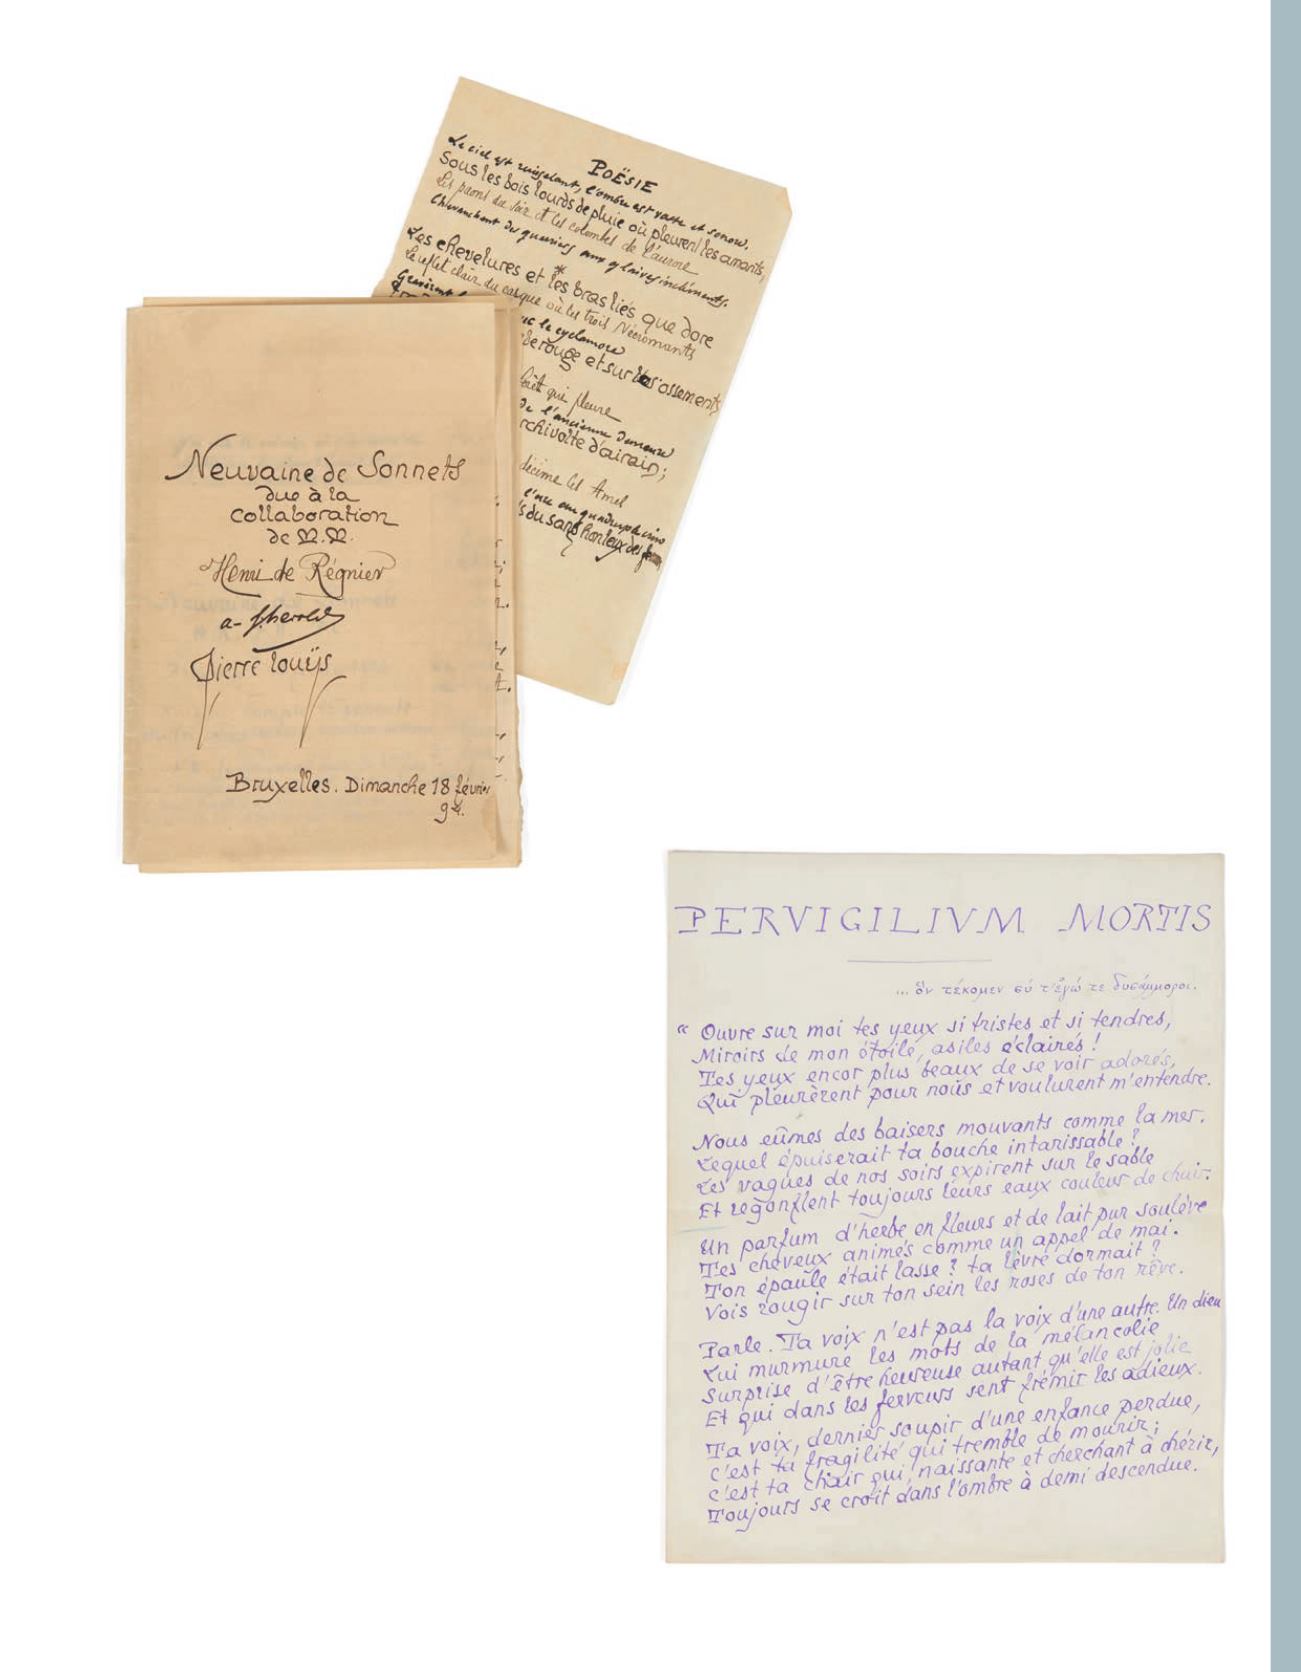 POËSIE
Le ciel est ruisselant, l'ombre est vaste et sonore.
Sous les bois lourds de pluie où pleurent les amants,
Les paons du soir et les colombes de l'aurore
Chevauchent des guerriers aux glaives incléments.
Les chevelures et les bras liés que dore
Le reflet clair du casque où les trois Nécromants
Gravirent
le cyclamore
rouge et sur les ossements
qui pleure
de l'ancienne demeure
rchivolte d'airain;
décime
l'arc au quadruple
du sang honteux des
Neuvaine de Sonnets
due à la
collaboration
de M.M.
Henri de Régnier
a-f. herold
Pierre Louÿs
Bruxelles. Dimanche 18 février
94.
PERVIGILIVM MORTIS
... ὅν τέκομεν σύ τ'ἐγώ τε δυσάμμοροι.
“ Ouvre sur moi tes yeux si tristes et si tendres,
Miroirs de mon étoile, asiles éclairés !
Tes yeux encor plus beaux de se voir adorés,
Qui pleurèrent pour nous et voulurent m'entendre.
Nous eûmes des baisers mouvants comme la mer.
Lequel épuiserait ta bouche intarissable ?
Les vagues de nos soirs expirent sur le sable
Et regonflent toujours leurs eaux couleur de chair.
Un parfum d'herbe en fleurs et de lait pur soulève
Tes cheveux animés comme un appel de mai.
Ton épaule était lasse ? ta lèvre dormait ?
Vois rougir sur ton sein les roses de ton rêve.
Parle. Ta voix n'est pas la voix d'une autre. Un dieu
Lui murmure les mots de la mélancolie
Surprise d'être heureuse autant qu'elle est jolie
Et qui dans les ferveurs sent frémir les adieux.
Ta voix, dernier soupir d'une enfance perdue,
C'est ta fragilité qui tremble de mourir ;
C'est ta chair qui, naissante et cherchant à chérir,
Toujours se croit dans l'ombre à demi descendue.